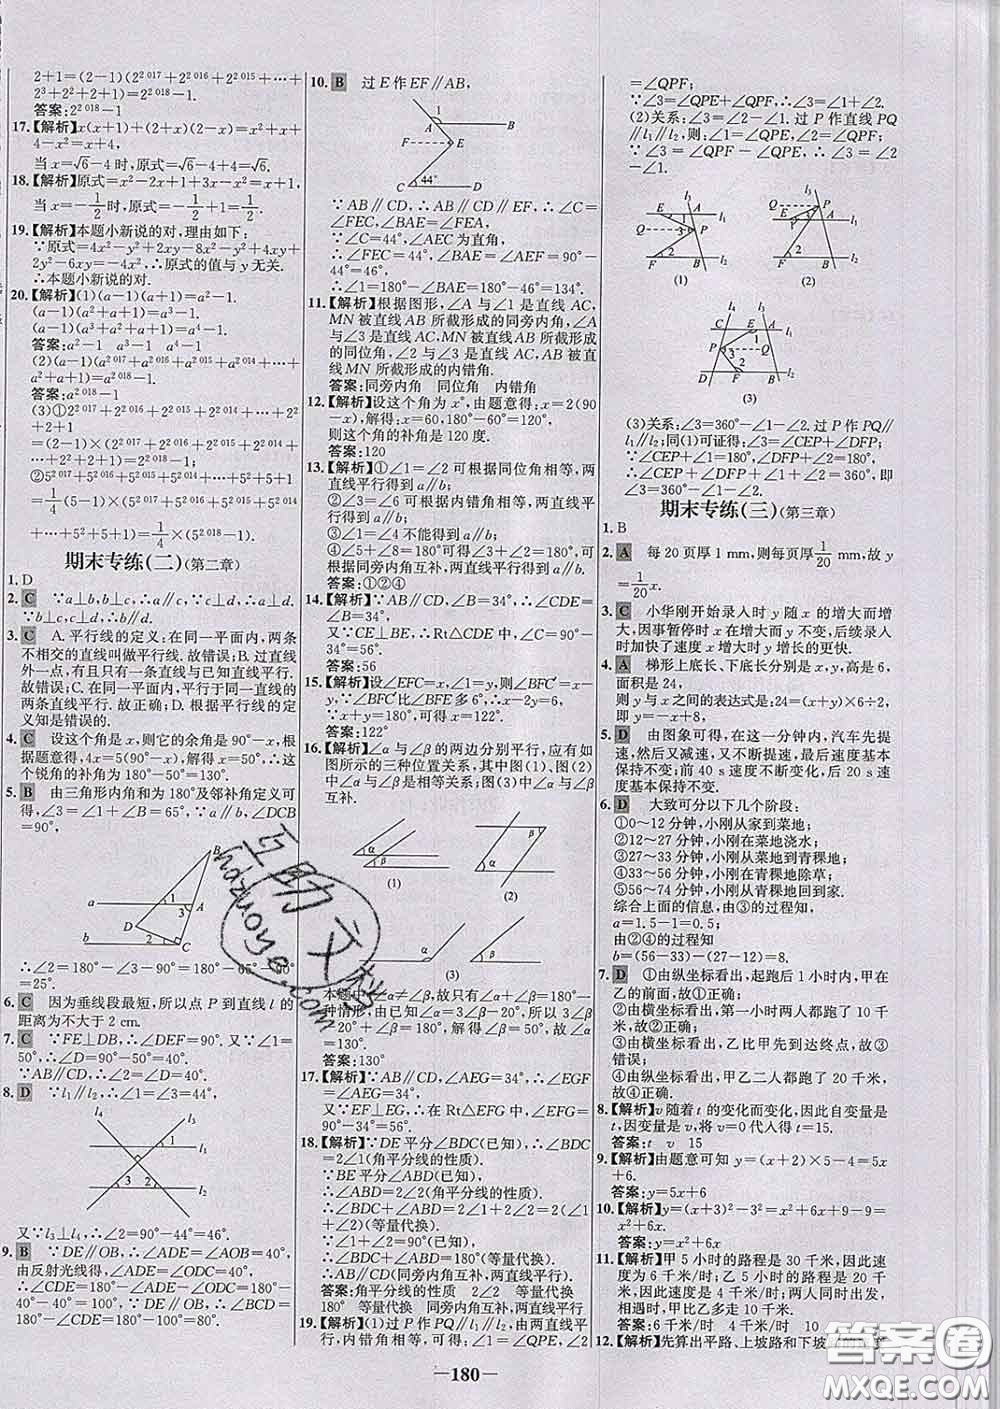 2+1=(2-1)(2^2 017+2^2 016+2^2 015+…+
2^3+2^2+2+1)=2^2 018-1.
答案:2^2 018-1
17.【解析】x(x+1)+(2+x)(2-x)=x²+x+
4-x²=x+4,
当x=√6-4时,原式=√6-4+4=√6.
18.【解析】原式=x²-2x+1+3x-x²=x+1,
当x=-1/2时,原式=-1/2+1=1/2.
19.【解析】本题小新说的对,理由如下:
∵原式=4x²-y²+2xy-8x²-y²+4xy+
2y²-6xy=-4x²,∴原式的值与y无关.
∴本题小新说的对.
20.【解析】(1)(a-1)(a+1)=a²-1.
(a-1)(a²+a+1)=a³-1.
(a-1)(a³+a²+a+1)=a⁴-1.
答案:a²-1 a³-1 a⁴-1
(2)(a-1)(a^2 017+a^2 016+a^2 015+a^2 014+…+
a²+a+1)=a^2 018-1.
答案:a^2 018-1
(3)①2^2 017+2^2 016+2^2 015+2^2 014+…+2²
+2+1
=(2-1)×(2^2 017+2^2 016+2^2 015+2^2 014+
…+2²+2+1)=2^2 018-1.
②5^2 017+5^2 016+5^2 015+5^2 014+…+5²+5+1
=1/4(5-1)×(5^2 017+5^2 016+5^2 015+5^2 014
+…+5²+5+1)=1/4×(5^2 018-1).
期末专练(二)(第二章)
1.D
2.C ∵a⊥b,b⊥c,∴a∥c,∵c⊥d,∴a⊥d.
∵b⊥c,c⊥d,∴b∥d.
3.C A.平行线的定义:在同一平面内,两条
不相交的直线叫做平行线.故错误;B.过直线
外一点,有且只有一条直线与已知直线平行.
故错误;C.在同一平面内,平行于同一直线的
两条直线平行.故正确;D.根据平行线的定
义知是错误的.
4.C 设这个角是x,则它的余角是90°-x,根
据题意得,x=4(90°-x),
锐角的补角为180°-50°=130°.
5.B 由三角形内角和为180°及邻补角定义可
得,∠3=∠1+∠B=65°,∵a∥b,∠DCB
=90°,
B
a 1 3 A
D
b 2 C
∴∠2=180°-∠3-90°=180°-65°-90°
=25°.
6.C 因为垂线段最短,所以点P到直线l的
距离为不大于2 cm.
7.C ∵FE⊥DB,∴∠DEF=90°.又∵∠1=
50°,∴∠D=90°-50°=40°.
∵AB∥CD,∴∠2=∠D=40°.
8.D ∵l₁∥l₂,∴∠1=∠3=44°,
l₄ l₃
1 l₁
3 2 l₂
又∵l₃⊥l₄,∴∠2=90°-44°=46°.
9.B ∵DE∥OB,∴∠ADE=∠AOB=40°,
由反射光线得,∠ADE=∠ODC=40°,
∴∠CDE=180°-∠ADE-∠ODC=180°-
40°-40°=100°.∵DE∥OB,∴∠BCD=
180°-∠CDE=180°-100°=80°.
10.B 过E作EF∥AB,
1
A B
F E
C 44° D
∵AB∥CD,∴AB∥CD∥EF,∴∠C=
∠FEC,∠BAE=∠FEA,
∵∠C=44°,∠AEC为直角,
∴∠FEC=44°,∠BAE=∠FEA=90°-
44°=46°,
∴∠1=180°-∠BAE=180°-46°=134°.
11.【解析】根据图形,∠A与∠1是直线AC,
MN被直线AB所截形成的同旁内角,∠A
与∠3是直线AC,MN被直线AB所截形成
的同位角,∠2与∠3是直线AC,MN被直
线AB所截形成的内错角.
答案:同旁内角 同位角 内错角
12.【解析】设这个角为x°,由题意得:x=2(90
-x),解得:x=60,180°-60°=120°,
则这个角的补角为120度.
答案:120
13.【解析】①∠1=∠2可根据同位角相等,两
直线平行得到a∥b;
②∠3=∠6可根据内错角相等,两直线平
行得到a∥b;
④∠5+∠3=180°可根据
同旁内角互补,两直线平行得到a∥b.
答案:①②④
14.【解析】∵AB∥CD,∴∠ABE=∠CDE=
∠B=34°,
又∵CE⊥BE,∴Rt△CDE中,∠C=90°
-34°=56°.
答案:56
15.【解析】设∠EFC=x,∠1=y,则∠BFC′=x
-y,∵∠BFC′比∠BFE多6°,∴x-2y=6,
∵x+y=180°,可得x=122°.
答案:122°
16.【解析】∠α与∠β的两边分别平行,应有如
图所示的三种位置关系,其中图(1)、图(2)
中∠α与∠β是相等关系;图(3)中∠α与∠β
互补.
α β
(1)
α β
(2)
α β
(3)
本题中∠α≠∠β,故只有∠α+∠β=180°一
种情形,由已知∠α=3∠β-20°,所以3∠β
-20°+∠β=180°,解得∠β=50°,所以∠α=
130°.
答案:130°
17.【解析】∵AB∥CD,∠AEG=34°,∴∠EGF
=∠AEG=34°,
又∵EF⊥EG,∴Rt△EFG中,∠EFG=
90°-34°=56°.
18.【解析】∵DE平分∠BDC(已知),∴∠BDC
=2∠1(角平分线的性质).
∵BE平分∠ABD(已知),
∴∠ABD=2∠2(角平分线的性质).
∴∠BDC+∠ABD=2∠1+2∠2=2(∠1
+∠2)(等量代换).
∵∠1+∠2=90°(已知),
∴∠BDC+∠ABD=180°(等量代换).
∴AB∥CD(同旁内角互补,两直线平行).
答案:角平分线的性质 2∠2 等量代换
180° 等量代换 同旁内角互补,两直线平行
19.【解析】(1)过P作PQ∥l₁∥l₂,由两直线平
行,内错角相等,可得:∠1=∠QPE,∠2
=∠QPF;
∵∠3=∠QPE+∠QPF,∴∠3=∠1+∠2.
(2)关系:∠3=∠2-∠1.过P作直线PQ
∥l₁∥l₂,则:∠1=∠QPE,∠2=∠QPF;
∵∠3=∠QPF-∠QPE,∴∠3=∠2
-∠1.
l₃
E A l₁
Q P
F B l₂
(1)
(2)
(3)
(3)关系:∠3=360°-∠1-∠2.过P作PQ∥
l₁∥l₂;同(1)可证得:∠3=∠CEP+∠DFP;
∵∠CEP+∠1=180°,∠DFP+∠2=180°,
∴∠CEP+∠DFP+∠1+∠2=360°,即
∠3=360°-∠1-∠2.
期末专练(三)(第三章)
1.B
2.A 每20页厚1 mm,则每页厚1/20 mm,故y
=1/20x.
3.C 小华刚开始录入时y随x的增大而增
大,因事暂停时x在增大而y不变,后续录入
时加快了速度x增大时y增长的更快.
4.A 梯形上底长、下底长分别是x,y,高是6,
面积是24,
则y与x之间的表达式是:24=(x+y)×6÷2,
即y=-x+8,
5.D 由图象可得,在这一分钟内,汽车先提
速,然后又减速,又不断提速,最后速度基本
保持不变;前40 s速度不断变化,后20 s基
本保持不变.
6.D 大致可分以下几个阶段:
①0~12分钟,小刚从家到菜地;
②12~27分钟,小刚在菜地浇水;
③27~33分钟,小刚从菜地到青稞地;
④33~56分钟,小刚在青稞地除草;
⑤56~74分钟,小刚从青稞地回到家.
综合上面的信息,由③的过程知
a=1.5-1=0.5;
由②④的过程知
b=(56-33)-(27-12)=8.
7.D ①由纵坐标看出,起跑后1小时内,甲在
乙的前面,故①正确;
②由横纵坐标看出,第一小时两人都跑了10千
米,故②正确;
③由横坐标看出,乙比甲先到达终点,故③
错误;
④由纵坐标看出,甲乙二人都跑了20千米,
故④正确.
8.【解析】v随着t的变化而变化,因此自变量是
t,因变量是v,将v=0代入得t=15.
答案:t v 15
9.【解析】由题意可知y=(x+2)×5-4=5x
+6.
答案:y=5x+6
10.【解析】y=(x+3)²-3²=x²+6x+9-9=
x²+6x.
答案:y=x²+6x
11.【解析】甲5小时的路程是30千米,因此速
度为6千米/时;乙5小时的路程是20千
米,因此速度为4千米/时.两人同时出发,
相遇时,甲比乙多走10千米.
答案:6千米/时 4千米/时 10
12.【解析】先算出平路、上坡路和下坡
—180—
答案圈
MXQE.COM